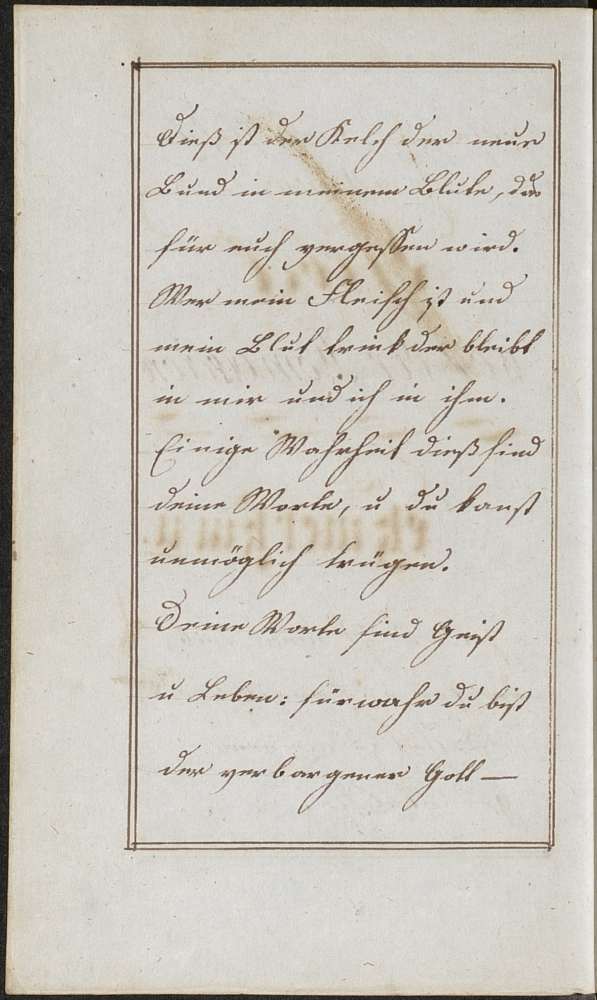 Dieß ist der Kelch der neue
Bund in meinem Blute, das
für euch vergossen wird.
Wer mein Fleisch ißt und
mein Blut trink der bleibt
in mir und ich in ihm.
Einige Wahrheit dieß sind
deine Worte, u du kanst
unmöglich trügen.
Deine Worte sind Geist
u Leben: fürwahr du bist
der verborgener Gott —